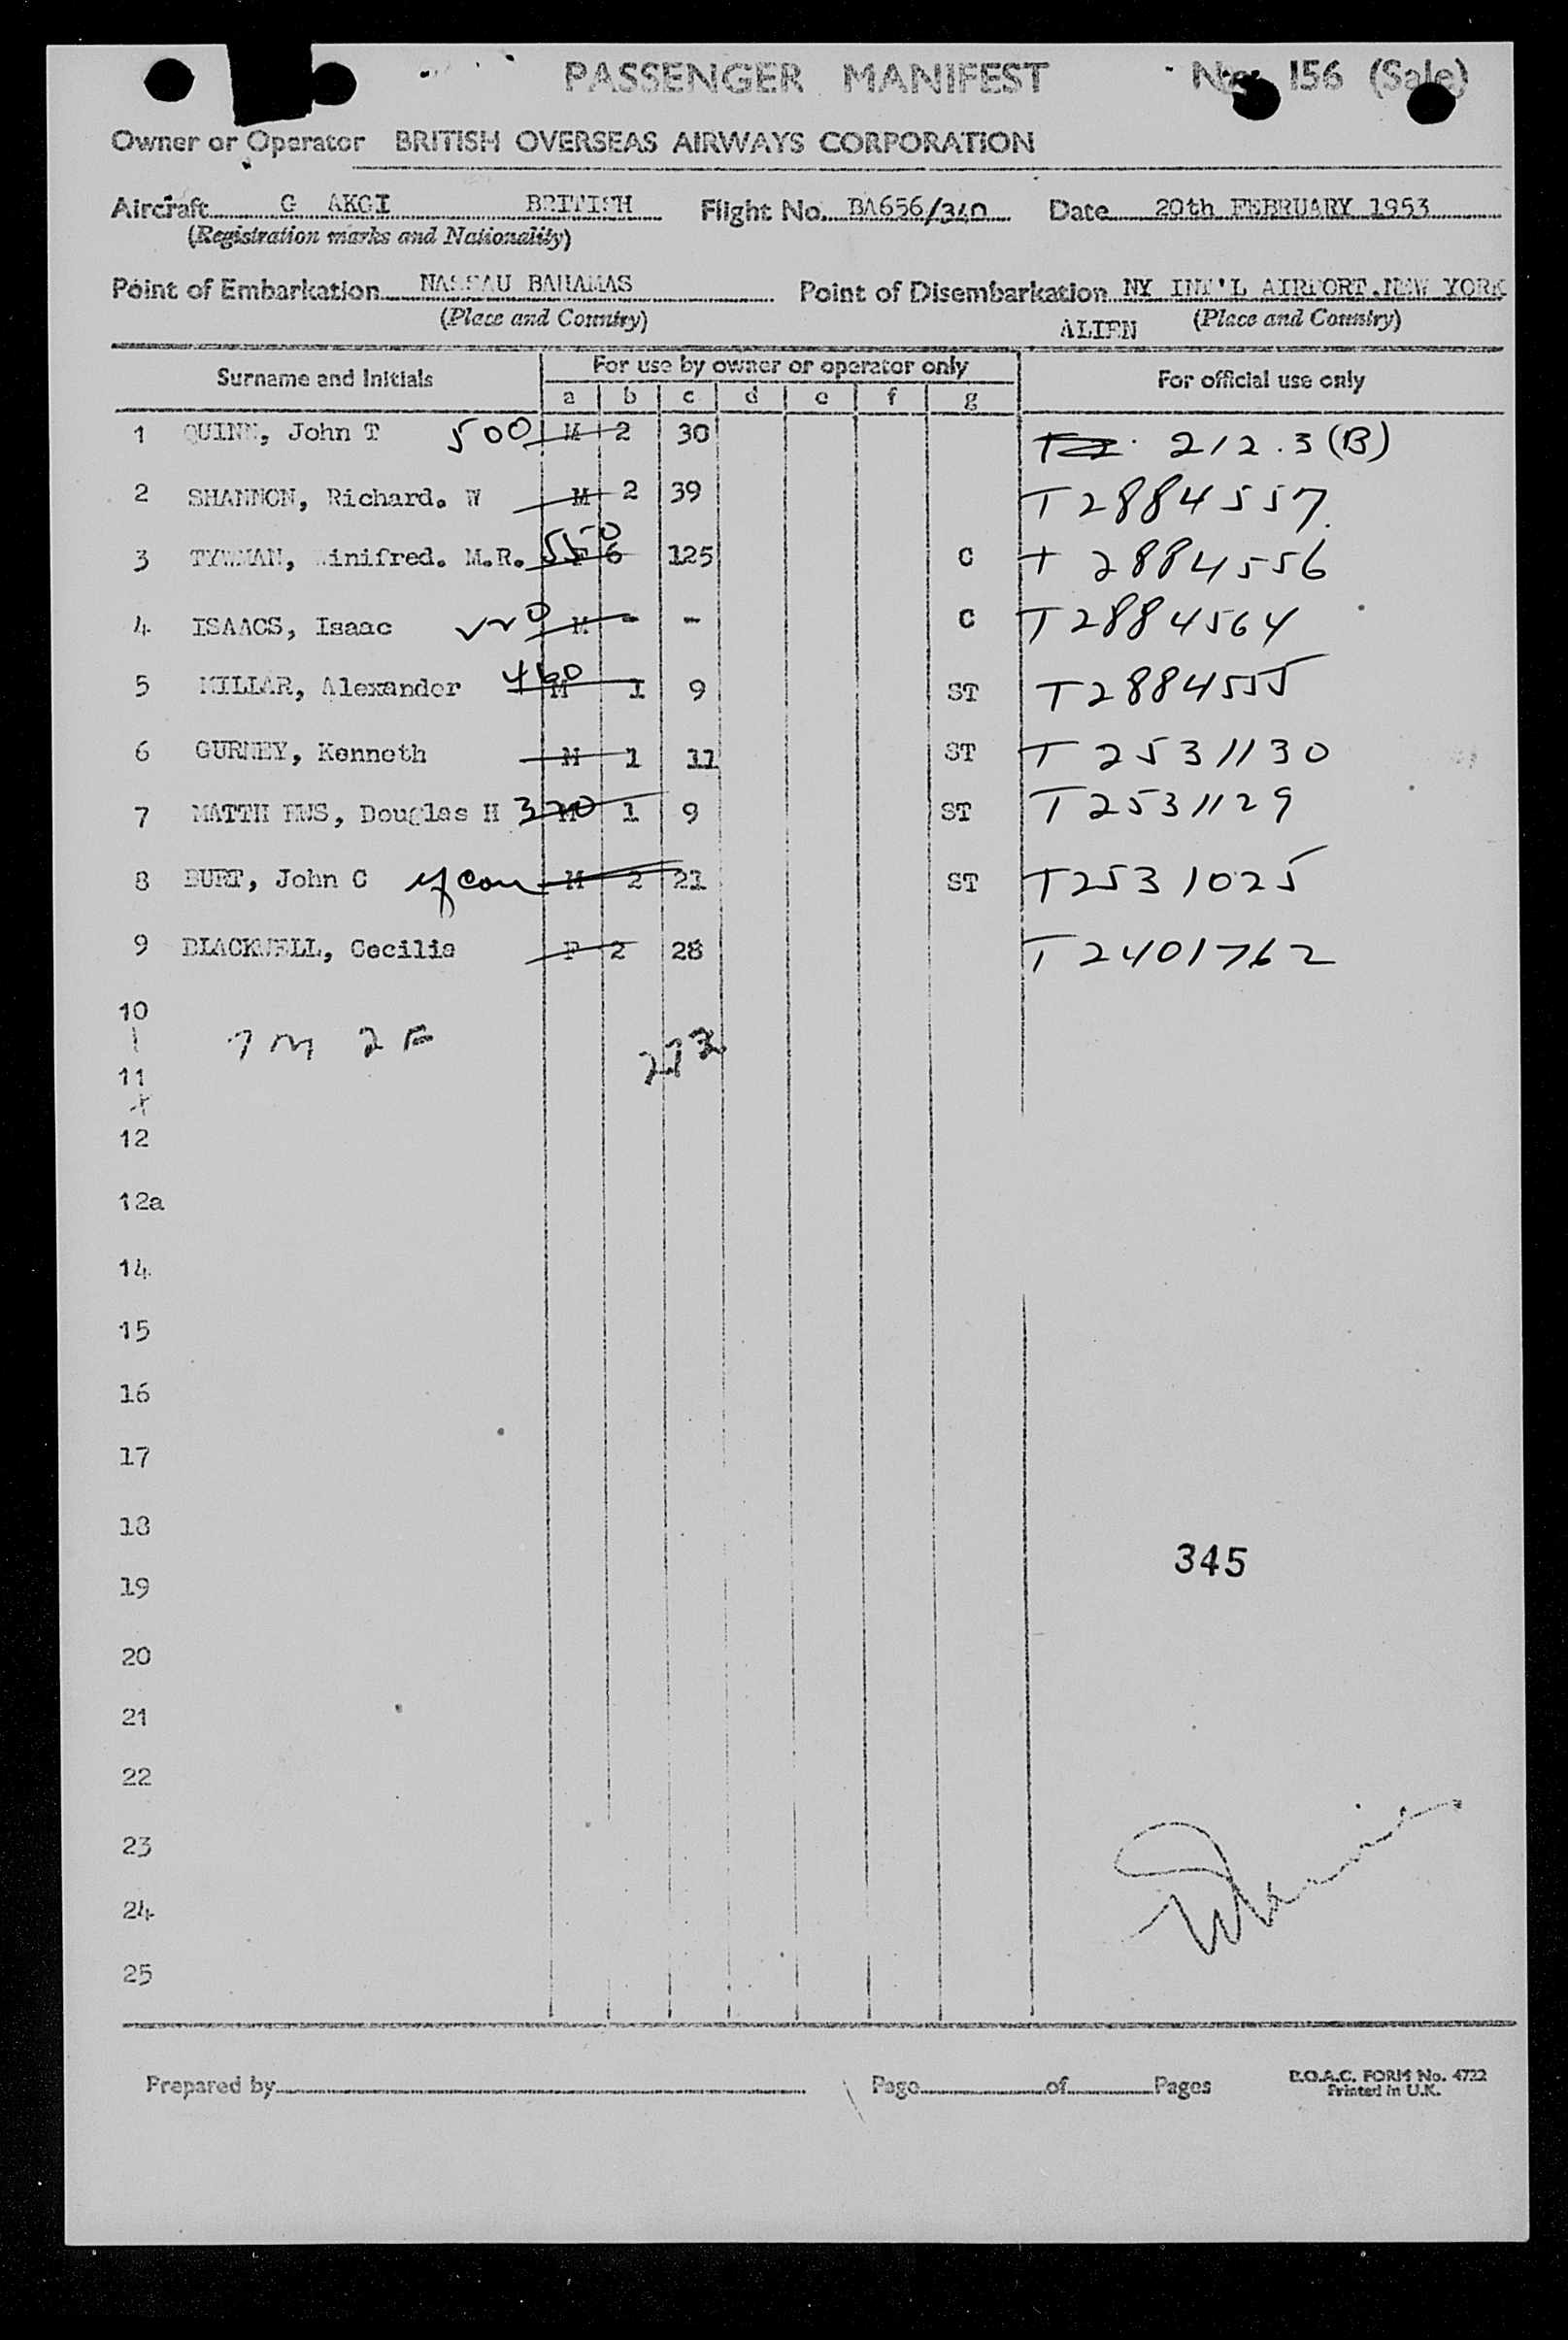 PASSENGER MANIFEST No. 156 (Sale)
Owner or Operator BRITISH OVERSEAS AIRWAYS CORPORATION
Aircraft G AKGI BRITISH Flight No. BA656/340 Date 20th FEBRUARY 1953
(Registration marks and Nationality)
Point of Embarkation NASSAU BAHAMAS Point of Disembarkation NY INT'L AIRPORT.NEW YORK
(Place and Country) ALIEN (Place and Country)
Surname and Initials For use by owner or operator only For official use only
a b c d e f g
1 QUINN, John T 500 M 2 30 212.3(B)
2 SHANNON, Richard. W M 2 39 T2884557
3 TYWMAN, Winifred. M.R. 550 F 6 125 C T 2884556
4 ISAACS, Isaac M - - C T2884564
5 MILLAR, Alexander 460 M 1 9 ST T2884555
6 GURNEY, Kenneth M 1 11 ST T 2531130
7 MATTHEWS, Douglas H 320 M 1 9 ST T2531129
8 BURT, John C M 2 21 ST T2531025
9 BLACKWELL, Cecilia F 2 28 T2401762
10
7 M 2 F
11
12
12a
14
15
16
17
18
345
19
20
21
22
23
24
25
Prepared by Page of Pages B.O.A.C. FORM No. 4722
Printed in U.K.